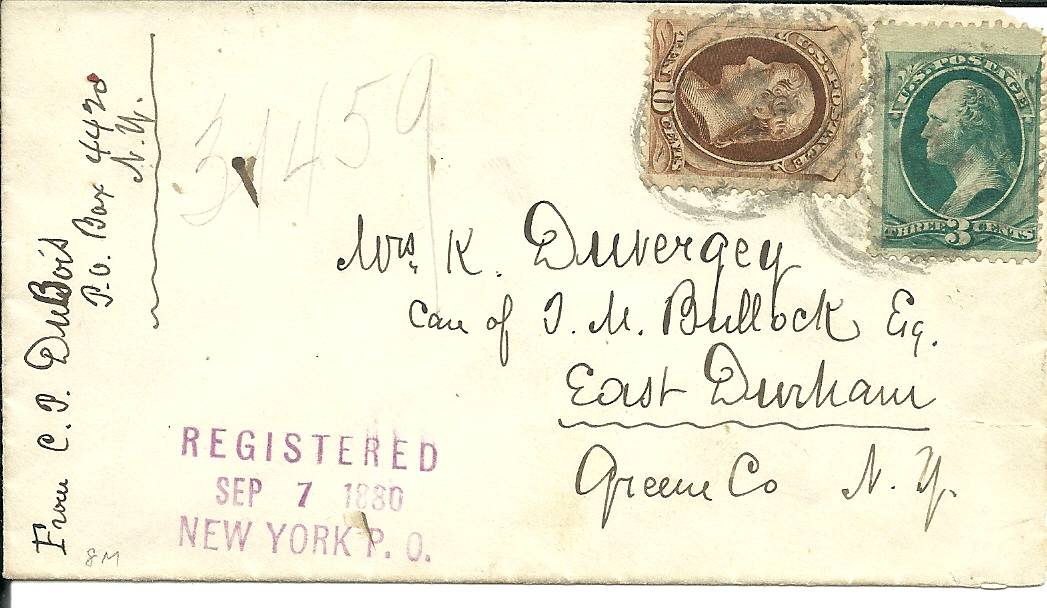 From C. P. DuBois
P.O. Box 4420
N.Y.
31459
U.S. POSTAGE
TEN CENTS
U.S. POSTAGE
THREE 3 CENTS
Mrs. K. Duvergey
Care of T. M. Bullock Esq.
East Durham
Greene Co N. Y.
REGISTERED
SEP 7 1880
NEW YORK P. O.
8M